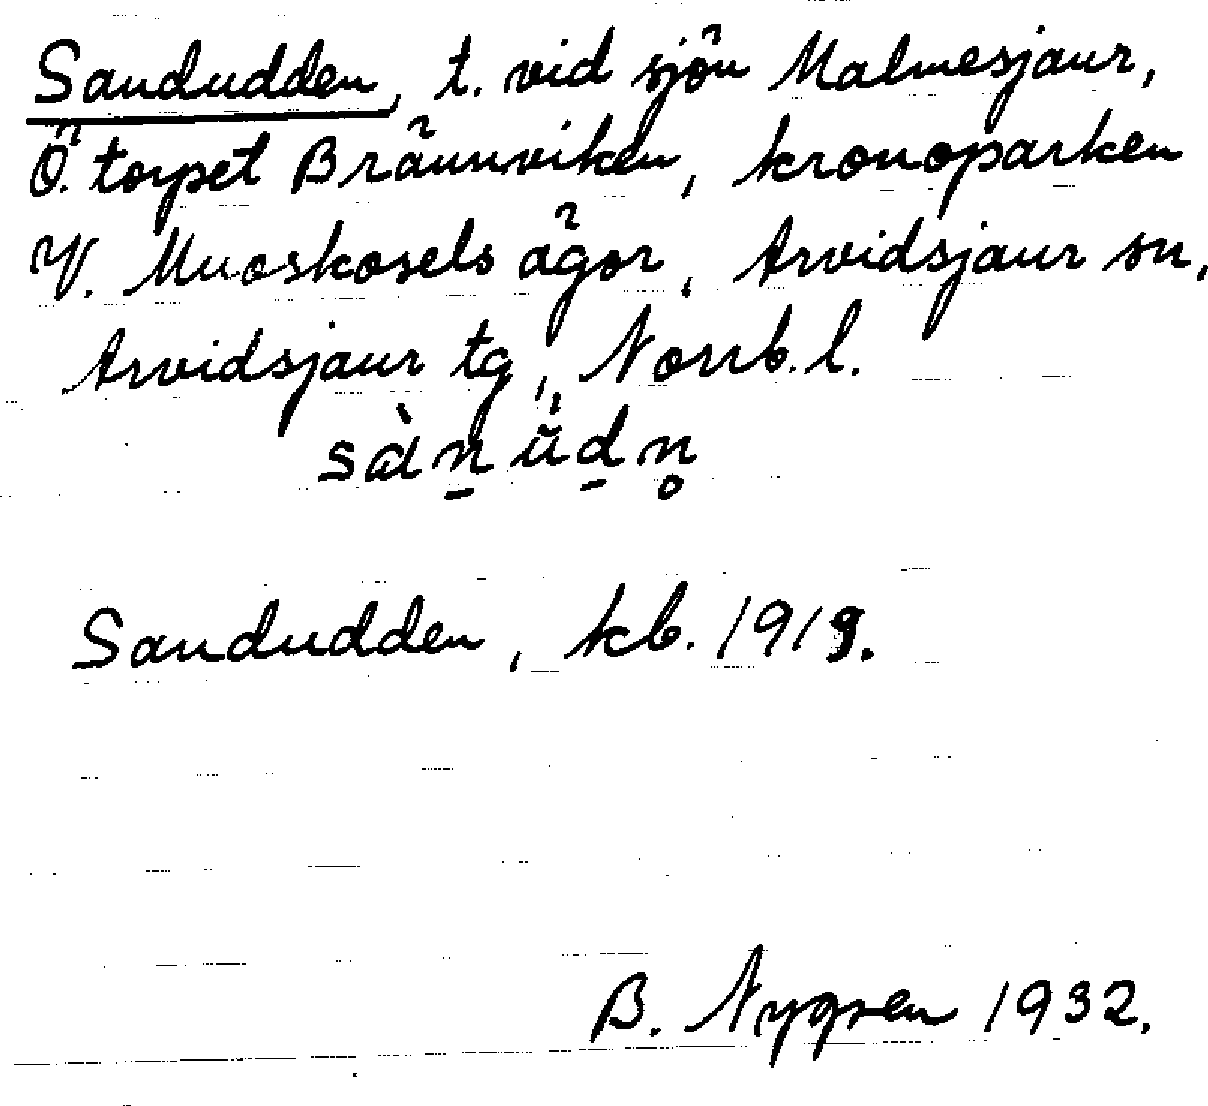 Sandudden, t. vid sjön Malmesjaur,
Ö. torpet Brännviken, kronoparken
V. Muoskosels ägor, Arvidsjaur sn,
Arvidsjaur tg, Norrb. l.
Sandudden, kb. 1919.
B. Nygren 1932.